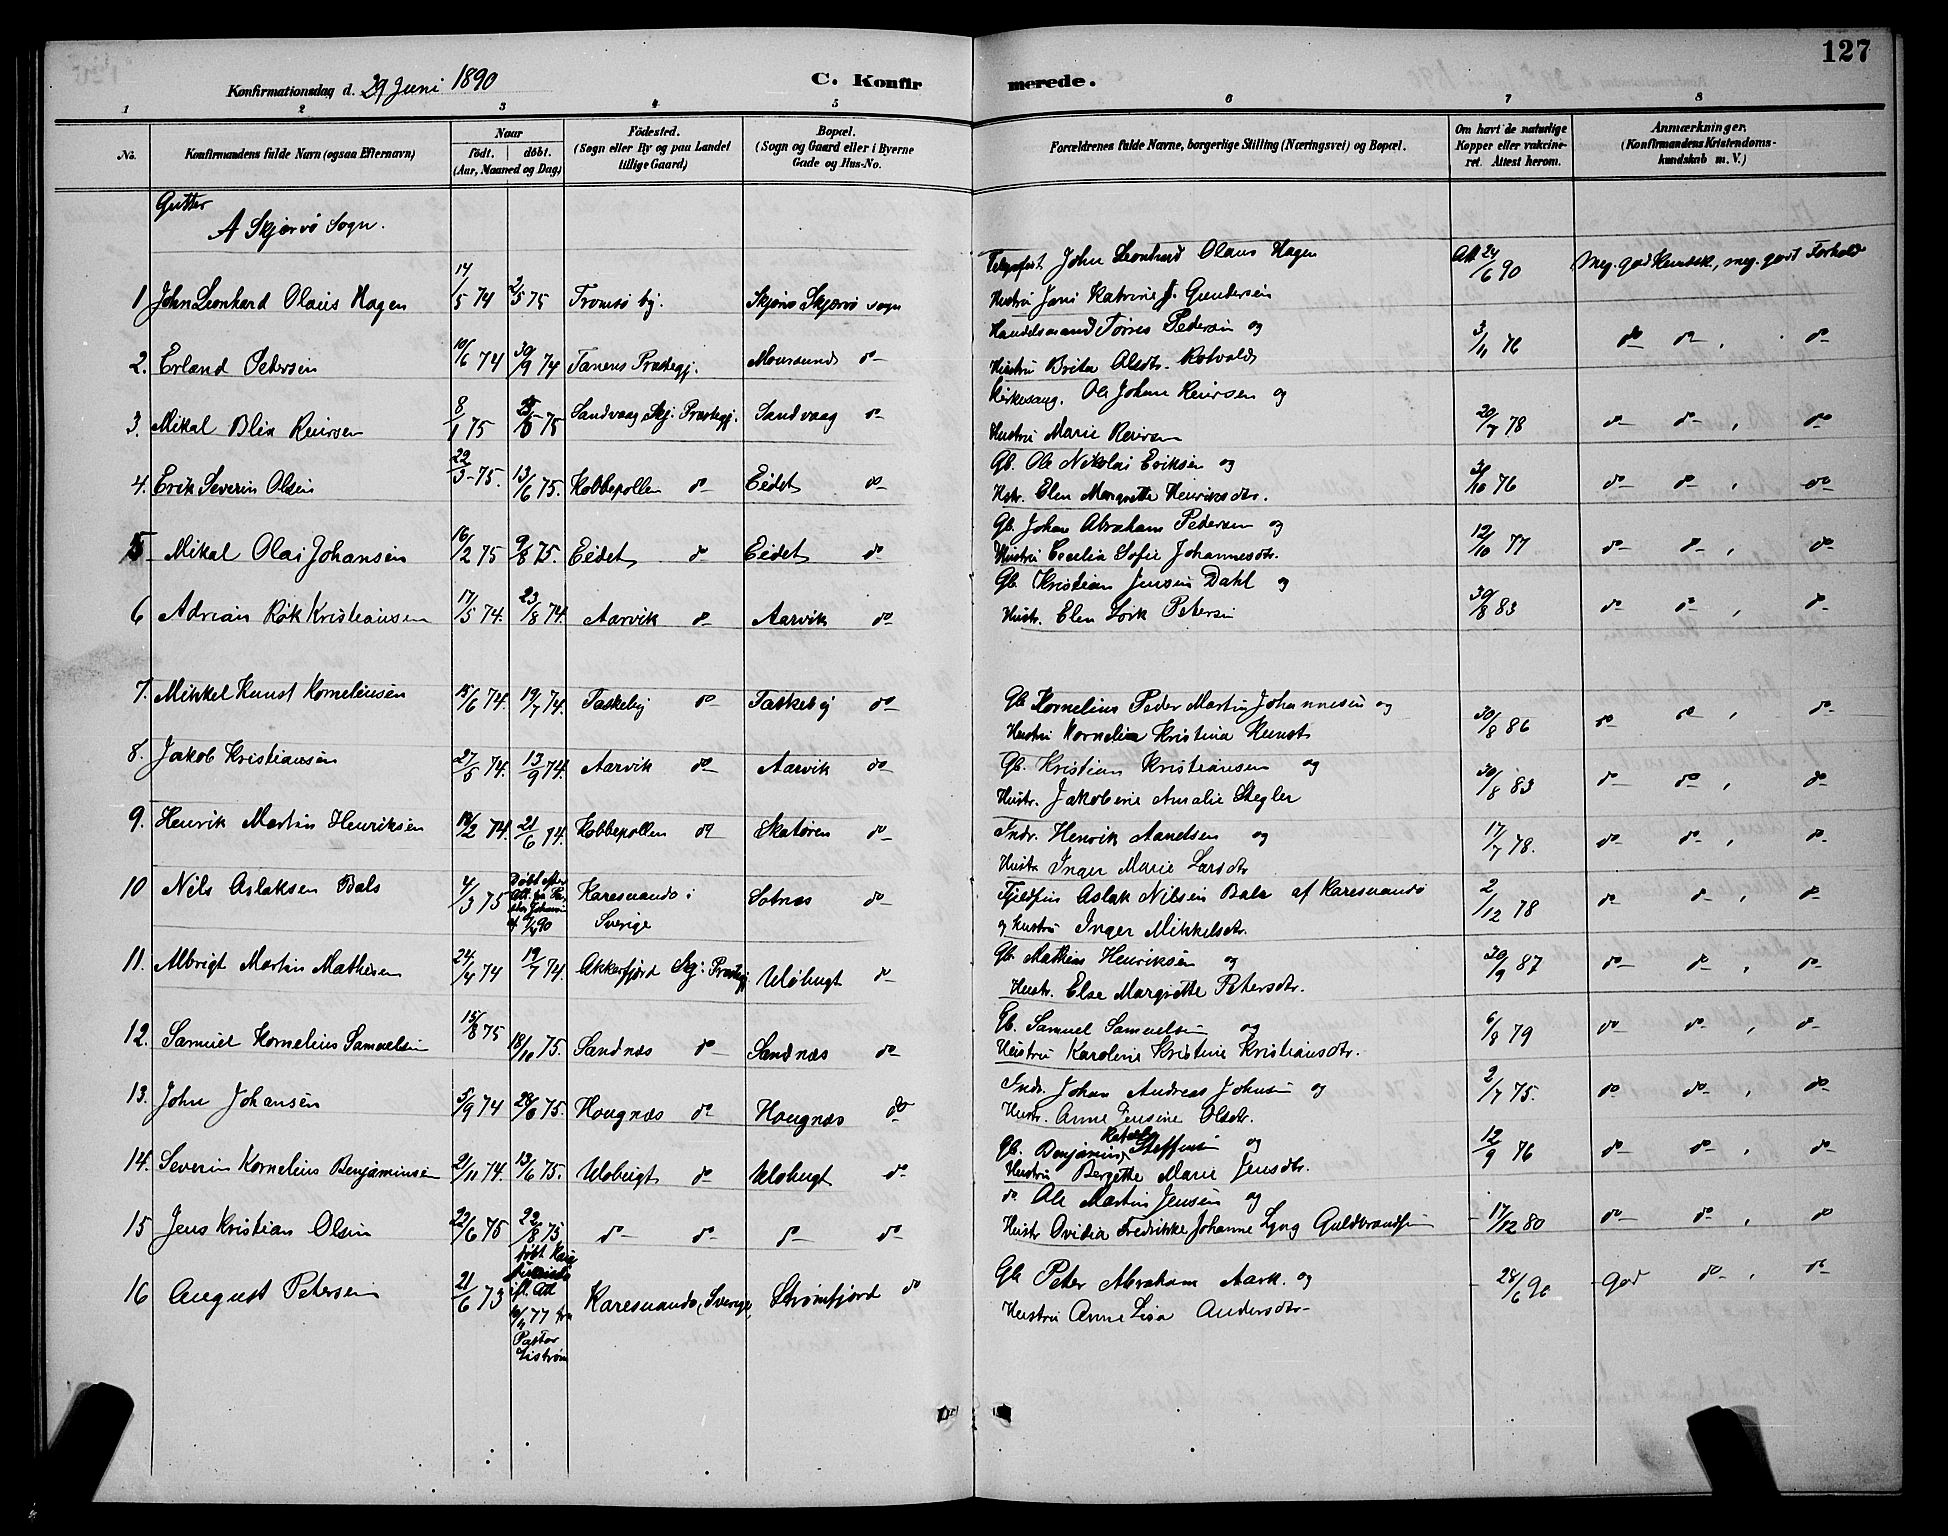 127
Konfirmationsdag d. 29 Juni 1890
C. Konfirmerede.
1 2 3 4 5 6 7 8
No.
Konfirmandens fulde Navn (ogsaa Efternavn)
Naar
födt. döbt.
(Aar, Maaned og Dag)
Födested.
(Sogn eller By og paa Landet
tillige Gaard)
Bopæl.
(Sogn og Gaard eller i Byerne
Gade og Hus-No.
Forældrenes fulde Navne, borgerlige Stilling (Næringsvei) og Bopæl.
Om havt de naturlige
Kopper eller vakcine-
ret. Attest herom.
Anmærkninger.
(Konfirmandens Kristendoms-
kundskab m. V.)
Gutter
A Skjervö Sogn.
1 John Leonhard Olaus Hagen 14/5 74 2/5 75 Tromsö by. Skjervö Skjervö sogn
John Leonhard Olaus Hagen
Hustru Jani Katrine J. Gundersen
Att 24/6 90 Meg. god Kundsk, meg. godt Forhold
2. Erland Petersen 10/6 74 30/9 74 Tanens Præstegj. Maursund do
Handelsmand Törres Pedersen og
Hustru Brita Olsdtr. Rotvold
3/11 76 do do , do
3. Mikal Blix Reiersen 8/1 75 75 Sandvaag Skj: Præstegj. Sandvaag do
Kirkesang. Ole Johan Reiersen og
Hustru Marie Reiersen
20/7 78 do do , do
4. Erik Severin Olsen 22/3 75. 13/6 75. Kobbepollen do Eidet do
Gb. Ole Nikolai Eriksen og
Hstr. Elen Margrethe Henriksdtr.
3/10 76 do do , do
5 Mikal Olai Johansen 16/2 75 9/8 75. Eidet do Eidet do
Gb. Johan Abraham Pedersen og
Hustru Cecelia Sofie Johannesdtr.
12/10 77 do do , do
6 Adrian Rök Kristiansen 17/5 74. 23/8 74. Aarvik do Aarvik do
Gb. Kristian Jensen Dahl og
Hustr. Elen Lovk Petersen
30/8 83 do do , do
7. Mikkel Kunst Korneliusen 15/6 74. 19/7 74. Taskeby do Taskeby do
Gb Kornelius Peder Martin Johannesen og
Hustru Kornelia Kristina Kunst
30/8 86 do do , do
8. Jakob Kristiansen 27/5 74. 13/9 74. Aarvik do Aarvik do
Gb. Kristian Kristiansen og
Hustr. Jakobine Amalie Stegler
30/8 83 do do , do
9. Henrik Martin Henriksen 18/2 74. 21/6 74. Kobbepollen do Skatören do
Indr. Henrik Aandsen og
Hustr. Inger Marie Larsdtr
17/7 78. do do , do
10 Nils Aslaksen Bals 4/3 75 Döbt efter Att. Karesuando i
Sverige Sotnæs do
Fjeldfin Aslak Nilsen Bals af Karesuando
og hustru Inger Mikkelsdtr.
2/12 78 do do , do
11. Albrigt Martin Mathisen 24/4 74 19/7 74. Akkarfjord Skj: Præstegj Ulöbugt do
Gb. Mathias Henriksen og
Hustr. Else Margrethe Petersdtr.
30/9 87 do do , do
12. Samuel Kornelius Samuelsen 15/8 75 18/10 75. Sandnæs do Sandnæs do
Gb. Samuel Samuelsen og
Hustru Karoline Kristine Kristiansdtr.
6/8 79 do do , do
13. John Johansen 5/9 74 75. Hougnæs do Hougnæs do
Indr. Johan Andreas Johnsen og
Hustr. Anne Jensine Olsdtr.
2/7 75. do do , do
14. Severin Kornelius Benjaminsen 2/11 74. 13/6 75. Ulöbugt do Ulöbugt do
Gb. Benjamin Steffensen og
Hustru Bergette Marie Jensdtr.
12/9 76 do do , do
15 Jens Kristian Olsen 22/6 75 22/8 75. do do do do
do Ole Martin Jensen og
Hustr Ovidia Fredrikke Johanne Lyng Guldbrandsen
17/12 80 do do , do
16 August Petersen 21/6 73 döbt
fl. Att
77 fra
Pastor
Liström Karesuando, Sverige, Strömfjord do
Gb Peter Abraham Aark. og
Hustru Anne Lisa Andersdtr
28/6 90 god do , do